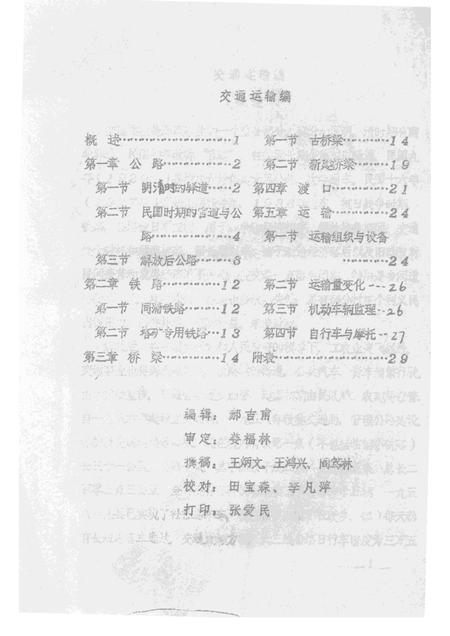 交通运输编
概 述………………1
第一章 公 路…………2
第一节 明清时的驿道……2
第二节 民国时期的官道与公
路……………4
第三节 解放后公路………8
第二章 铁 路…………12
第一节 同蒲铁路………12
第二节 专用铁路…13
第三章 桥 梁…………14
第一节 古桥梁…………14
第二节 新建桥梁………19
第四章 渡 口…………21
第五章 运 输…………24
第一节 运输组织与设备
………24
第二节 运输量变化……26
第三节 机动车辆监理…26
第四节 自行车与摩托…27
附表………………29
编辑：郝吉甫
审定：娄福林
撰稿：王炳文、王鸿兴、阎笃林
校对：田宝森、辛凡萍
打印：张爱民